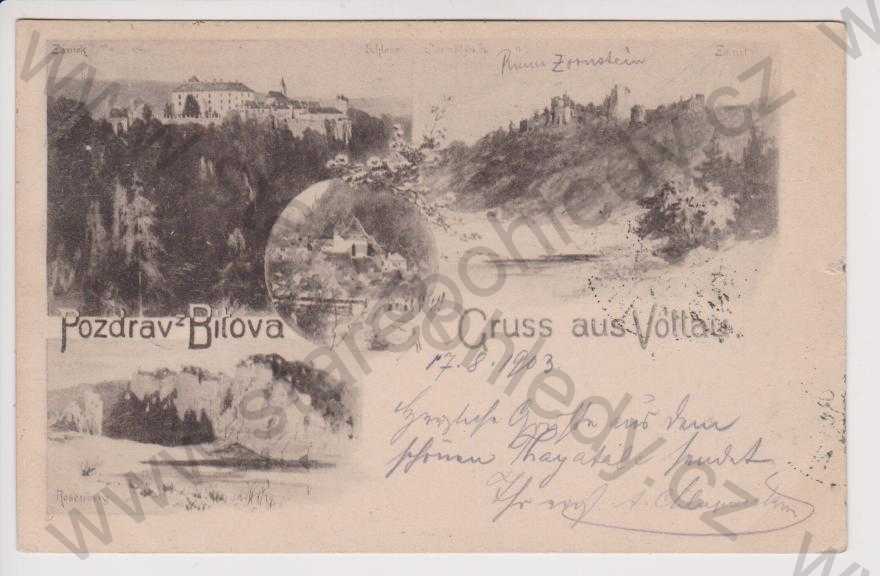 Zámek Schloss
Ruine Zornstein
Pozdrav z Bítova
Gruss aus Vöttau
17.8.1903
Herzliche Grüße aus dem
schönen Thayatal sendet
Ihr
www.starepohledy.cz